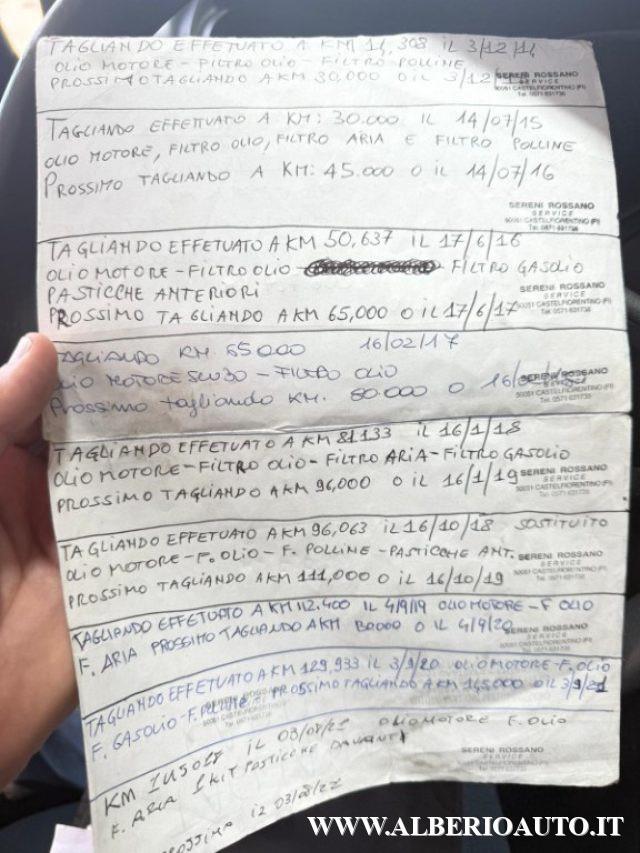 TAGLIANDO EFFETUATO A KM 14,308 IL 3/12/14
OLIO MOTORE - FILTRO OLIO - FILTRO POLLINE
PROSSIMO TAGLIANDO A KM 30,000 O IL 3/12/
SERENI ROSSANO
SERVICE
50051 CASTELFIORENTINO (FI)
Tel. 0571 631736
TAGLIANDO EFFETTUATO A KM: 30.000 IL 14/07/15
OLIO MOTORE, FILTRO OLIO, FILTRO ARIA E FILTRO POLLINE
PROSSIMO TAGLIANDO A KM: 45.000 O IL 14/07/16
SERENI ROSSANO
SERVICE
50051 CASTELFIORENTINO (FI)
Tel. 0571 631736
TAGLIANDO EFFETUATO A KM 50,637 IL 17/6/16
OLIO MOTORE - FILTRO OLIO - FILTRO GASOLIO
PASTICCHE ANTERIORI
PROSSIMO TAGLIANDO A KM 65,000 O IL 17/6/17
SERENI ROSSANO
SERVICE
50051 CASTELFIORENTINO (FI)
Tel. 0571 631736
TAGLIANDO KM. 65000 16/02/17
OLIO MOTORE 5W30 - FILTRO OLIO
Prossimo tagliando KM. 80.000 O 16/
SERENI ROSSANO
SERVICE
50051 CASTELFIORENTINO (FI)
Tel. 0571 631736
TAGLIANDO EFFETUATO A KM 81133 IL 16/1/18
OLIO MOTORE - FILTRO OLIO - FILTRO ARIA - FILTRO GASOLIO
PROSSIMO TAGLIANDO A KM 96,000 O IL 16/1/19
SERENI ROSSANO
SERVICE
50051 CASTELFIORENTINO (FI)
Tel. 0571 631736
TAGLIANDO EFFETUATO A KM 96,063 IL 16/10/18 SOSTITUITO
OLIO MOTORE - F. OLIO - F. POLLINE - PASTICCHE ANT.
PROSSIMO TAGLIANDO A KM 111,000 O IL 16/10/19
SERENI ROSSANO
SERVICE
50051 CASTELFIORENTINO (FI)
Tel. 0571 631736
TAGLIANDO EFFETUATO A KM 112.400 IL 4/9/19 OLIO MOTORE - F OLIO
F. ARIA PROSSIMO TAGLIANDO A KM O IL 4/9/20
SERENI ROSSANO
SERVICE
50051 CASTELFIORENTINO (FI)
Tel. 0571 631736
TAGLIANDO EFFETUATO A KM 129,933 IL 3/9/20 OLIO MOTORE - F. OLIO
F. GASOLIO - F. POLLINE PROSSIMO TAGLIANDO A KM 145,000 O IL 3/9/21
SERENI ROSSANO
KM IL 03/08/21 OLIO MOTORE F. OLIO
F. ARIA 1 KIT PASTICCHE DAVANTI
SERENI ROSSANO
SERVICE
PROSSIMA IL 03/08/22
WWW.ALBERIOAUTO.IT